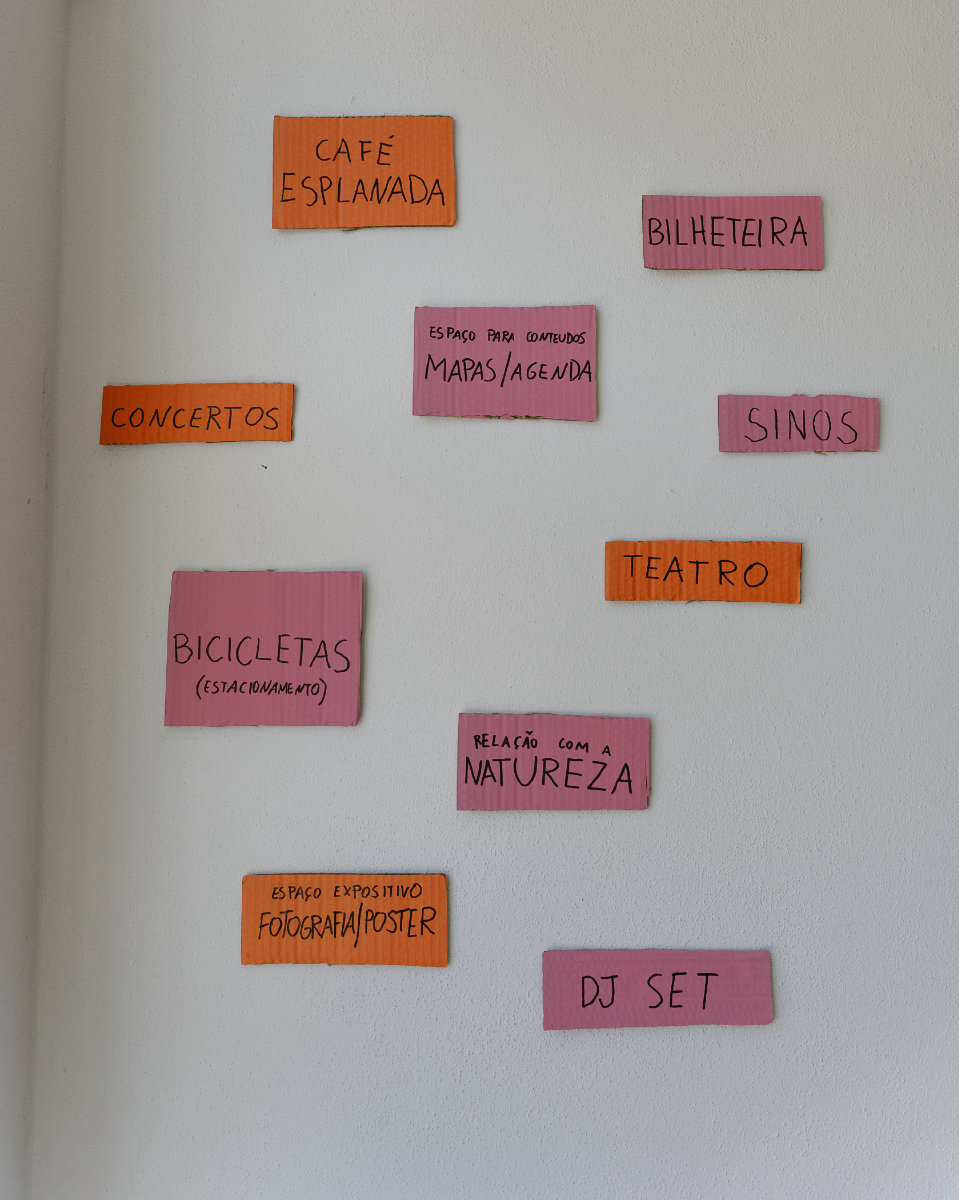 CAFÉ
ESPLANADA
BILHETEIRA
ESPAÇO PARA CONTEUDOS
MAPAS/AGENDA
CONCERTOS
SINOS
TEATRO
BICICLETAS
(ESTACIONAMENTO)
RELAÇÃO COM A
NATUREZA
ESPAÇO EXPOSITIVO
FOTOGRAFIA/POSTER
DJ SET